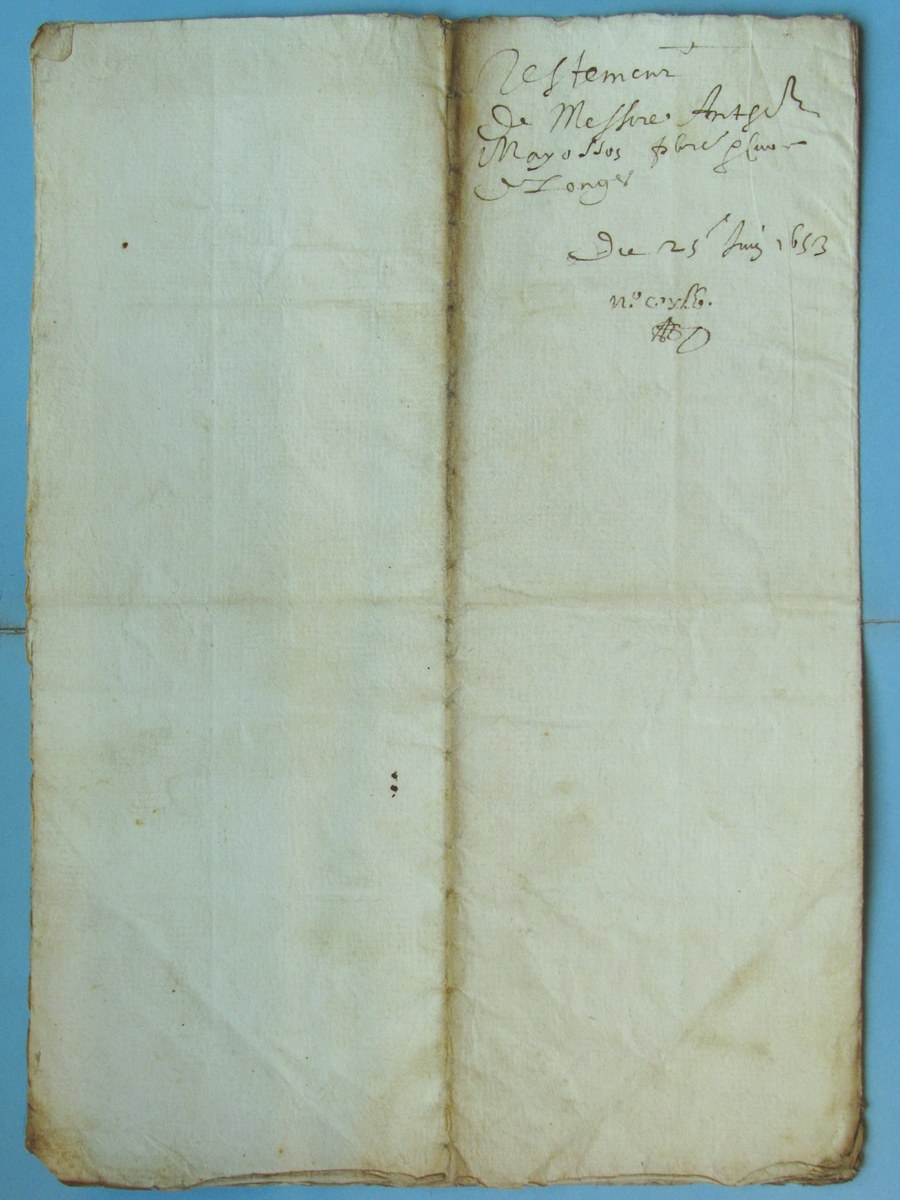 Testement
De Messire Anthoine
Mayossos pbre
Longes
Du 25 Juin 1653
n.o